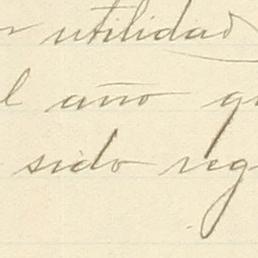 utilidad
l año q
sido reg